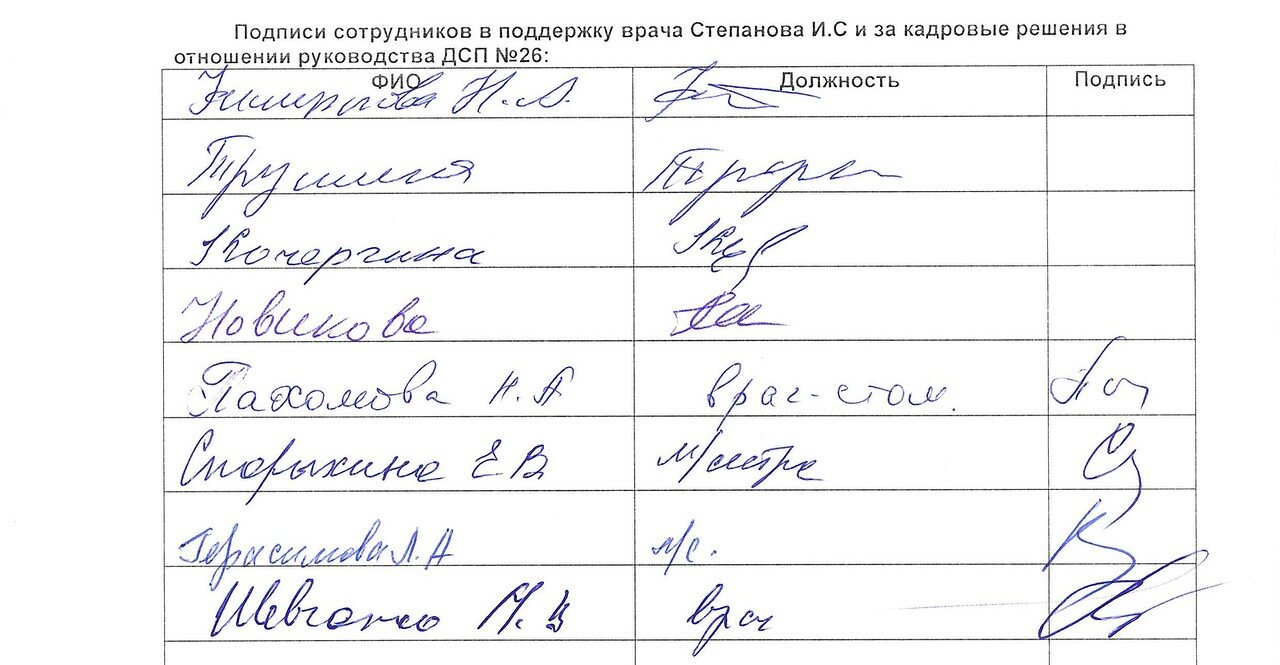 Подписи сотрудников в поддержку врача Степанова И.С и за кадровые решения в
отношении руководства ДСП №26:
ФИО Должность Подпись
Н.А.
Трушина
Кочергина
Новикова
Пахомова Н.А врач-стом.
Спорыхина Е В м/сестра
Герасимова Л.А м/с.
Шевченко врач